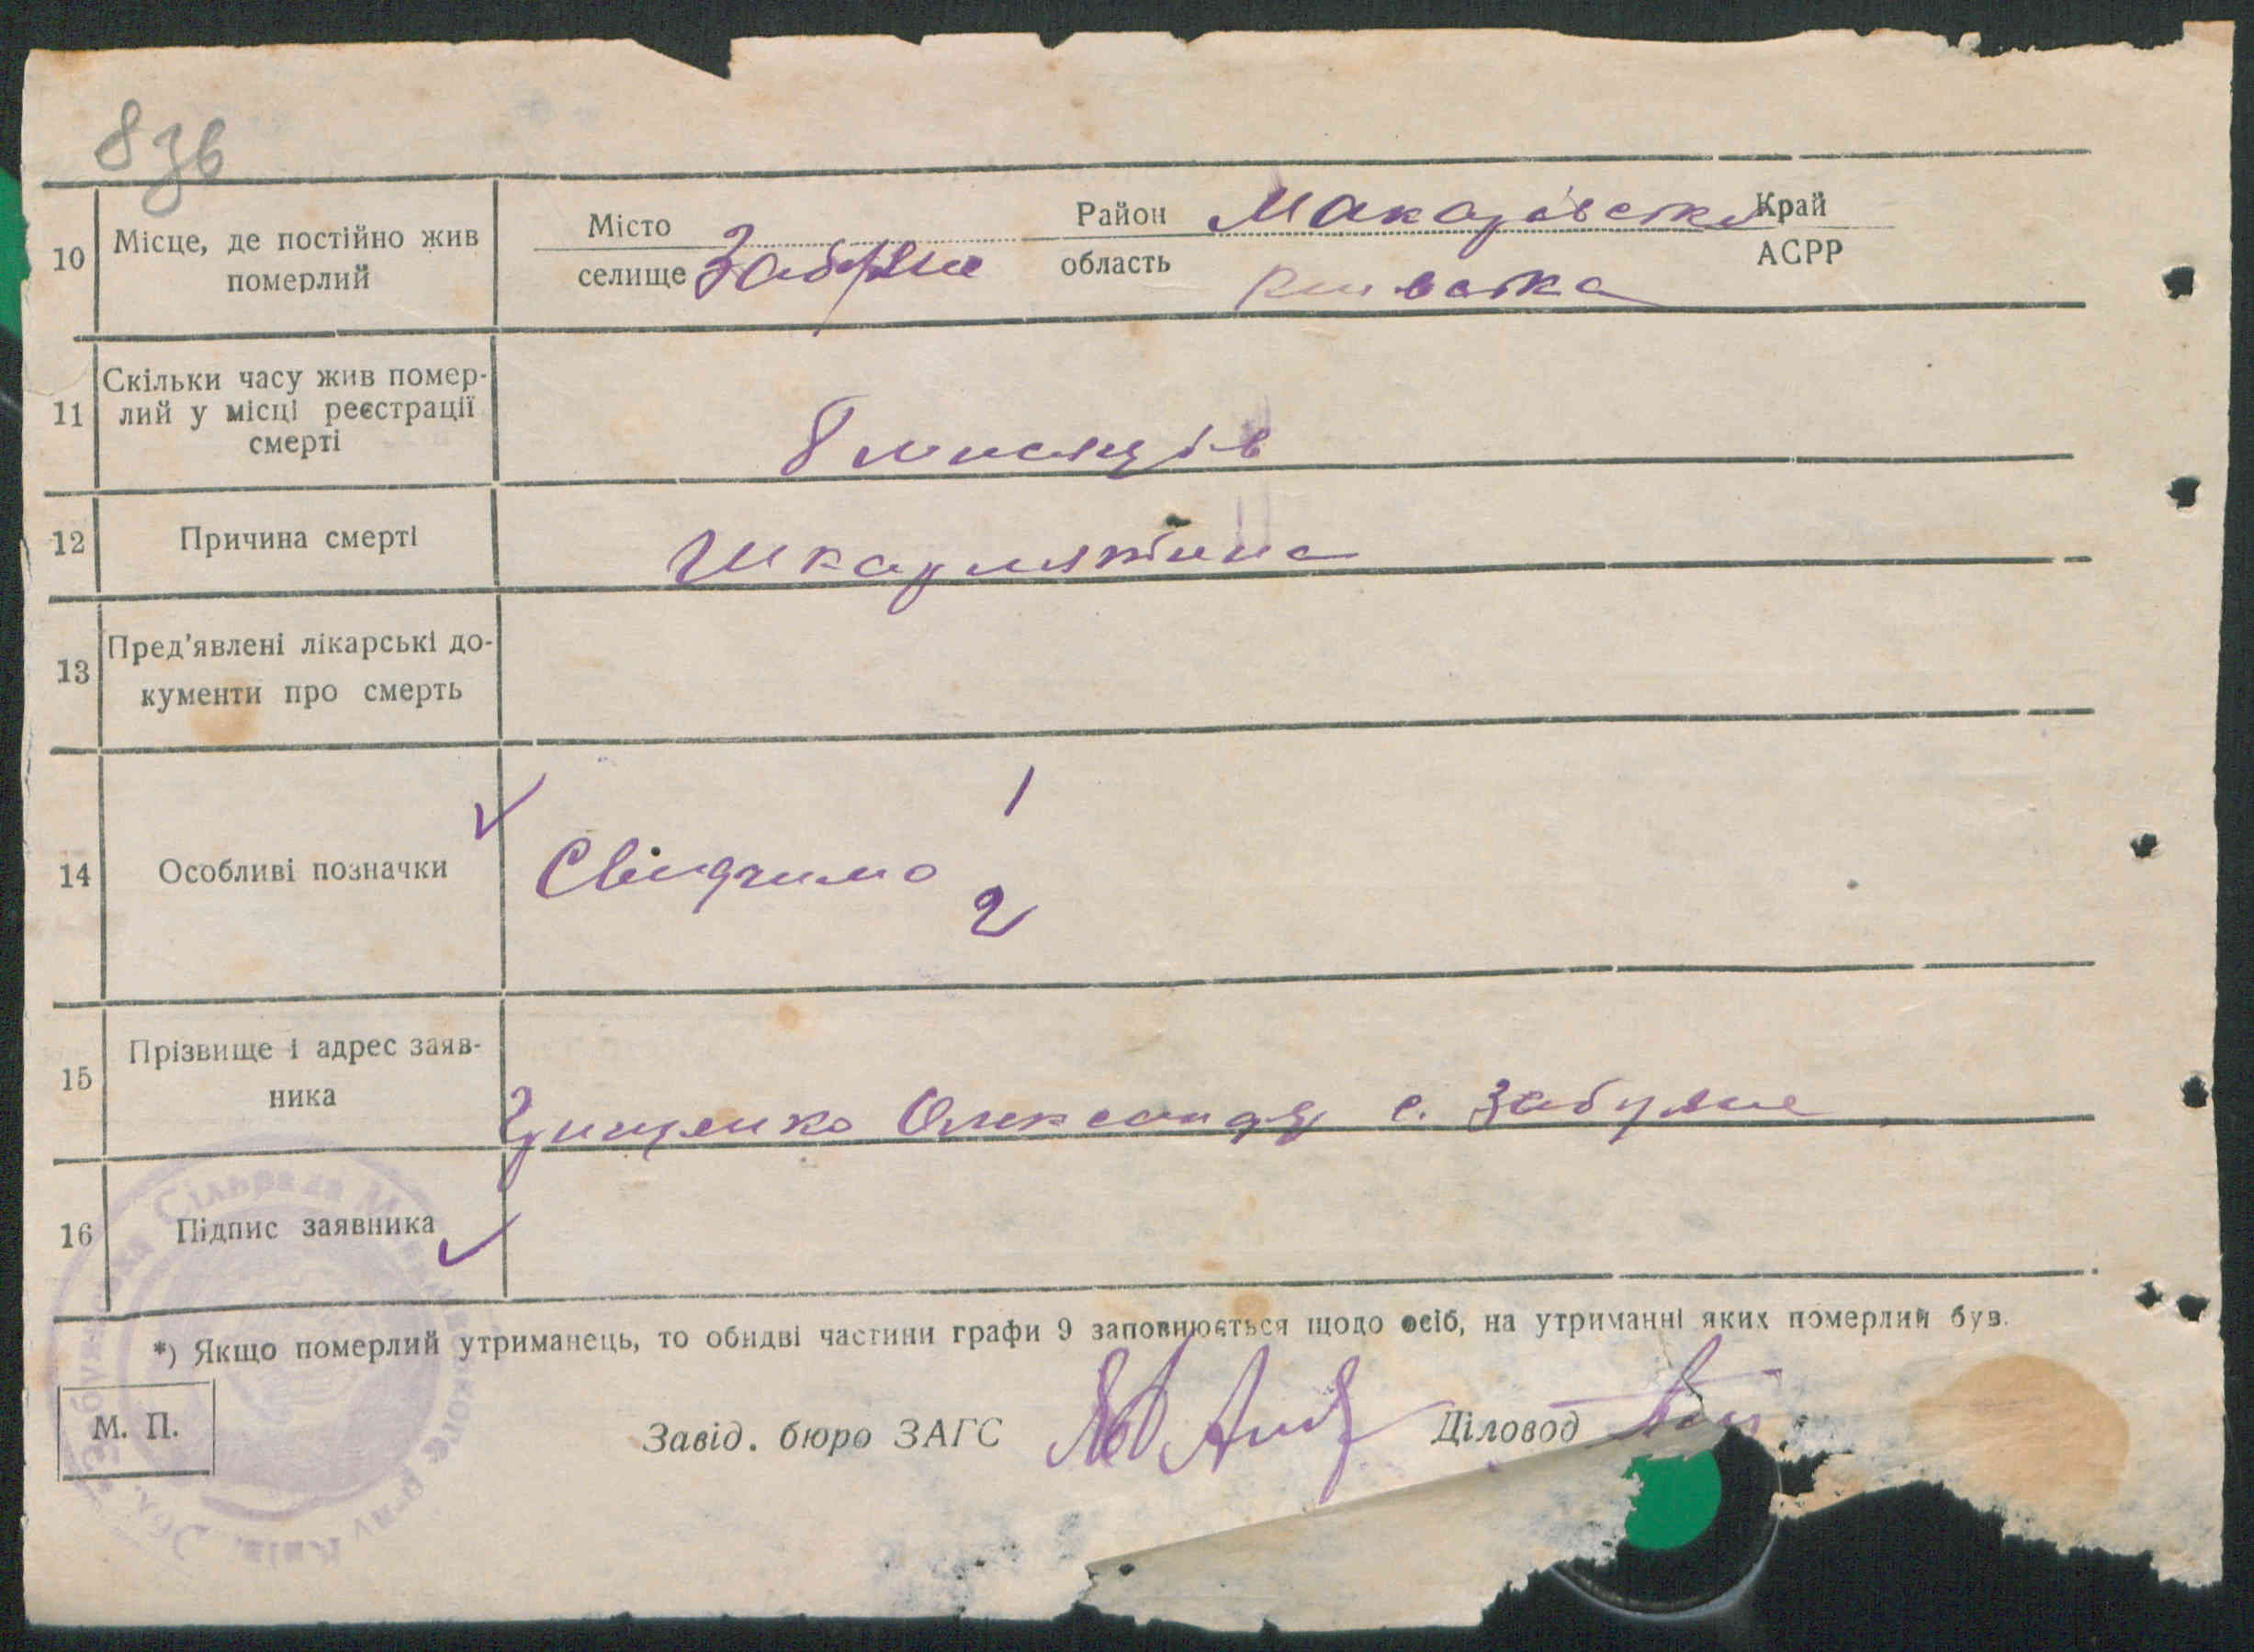 8зв
10 Місце, де постійно жив померлий
Місто Район Макарівський Край
селище Забуяне область Київська АСРР
11 Скільки часу жив помер-
лий у місці реєстрації
смерті
8 мисяців
12 Причина смерті Шкарлятина
13 Пред'явлені лікарські до-
кументи про смерть
14 Особливі позначки Свідчимо 1
2
15 Прізвище і адрес заяв-
ника
Грищенко Олександр с. Забуяне
16 Підпис заявника
*) Якщо померлий утриманець, то обидві частини графи 9 заповнюється щодо осіб, на утриманні яких померлий був.
М. П.
Завід. бюро ЗАГС Діловод